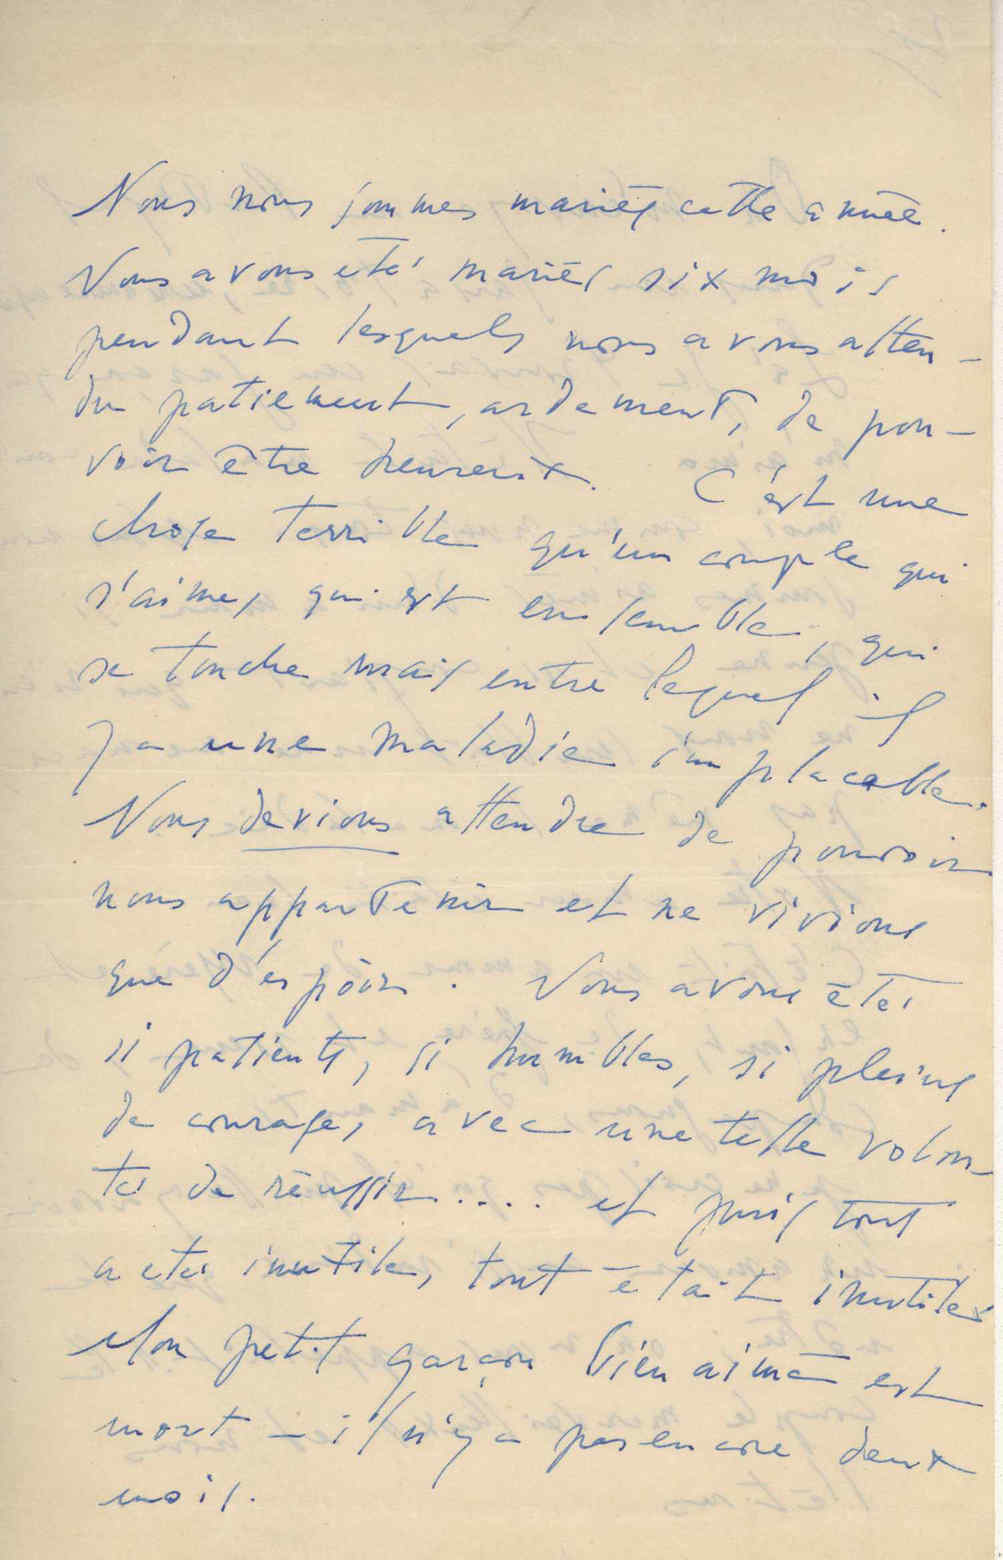 Nous nous sommes mariés cette année.
Nous avons été mariés six mois
pendant lesquels nous avons atten-
du patiement, ardement, de pou-
voir être heureux. C'est une
chose terrible qu'un couple qui
s'aime, qui est ensemble, qui
se touche mais entre lequel il
y a une maladie implacable.
Nous devions attendre de pouvoir
nous appartenir et ne vivions
que d'espoir. Nous avons été
si patients, si humbles, si pleins
de courage, avec une telle volon-
té de réussir.... et puis tout
a été inutile, tout était inutile.
Mon petit garçon bien aimé est
mort – il n'y a pas encore deux
mois.